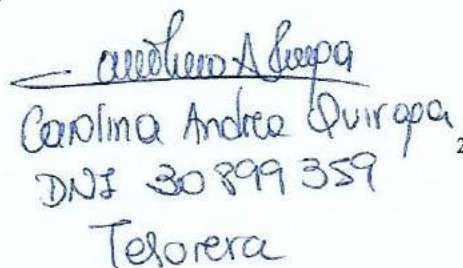 Carolina Andrea Quiroga
DNI 30899359
Tesorera
2